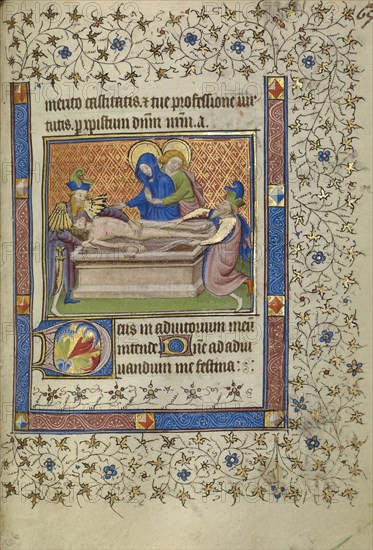 merito castitatis. & tue professione uir
tutis. p xpistum dnm nrm. a.
Deus in adiutorium meu
intende. Dne ad adiu
uandum me festina: